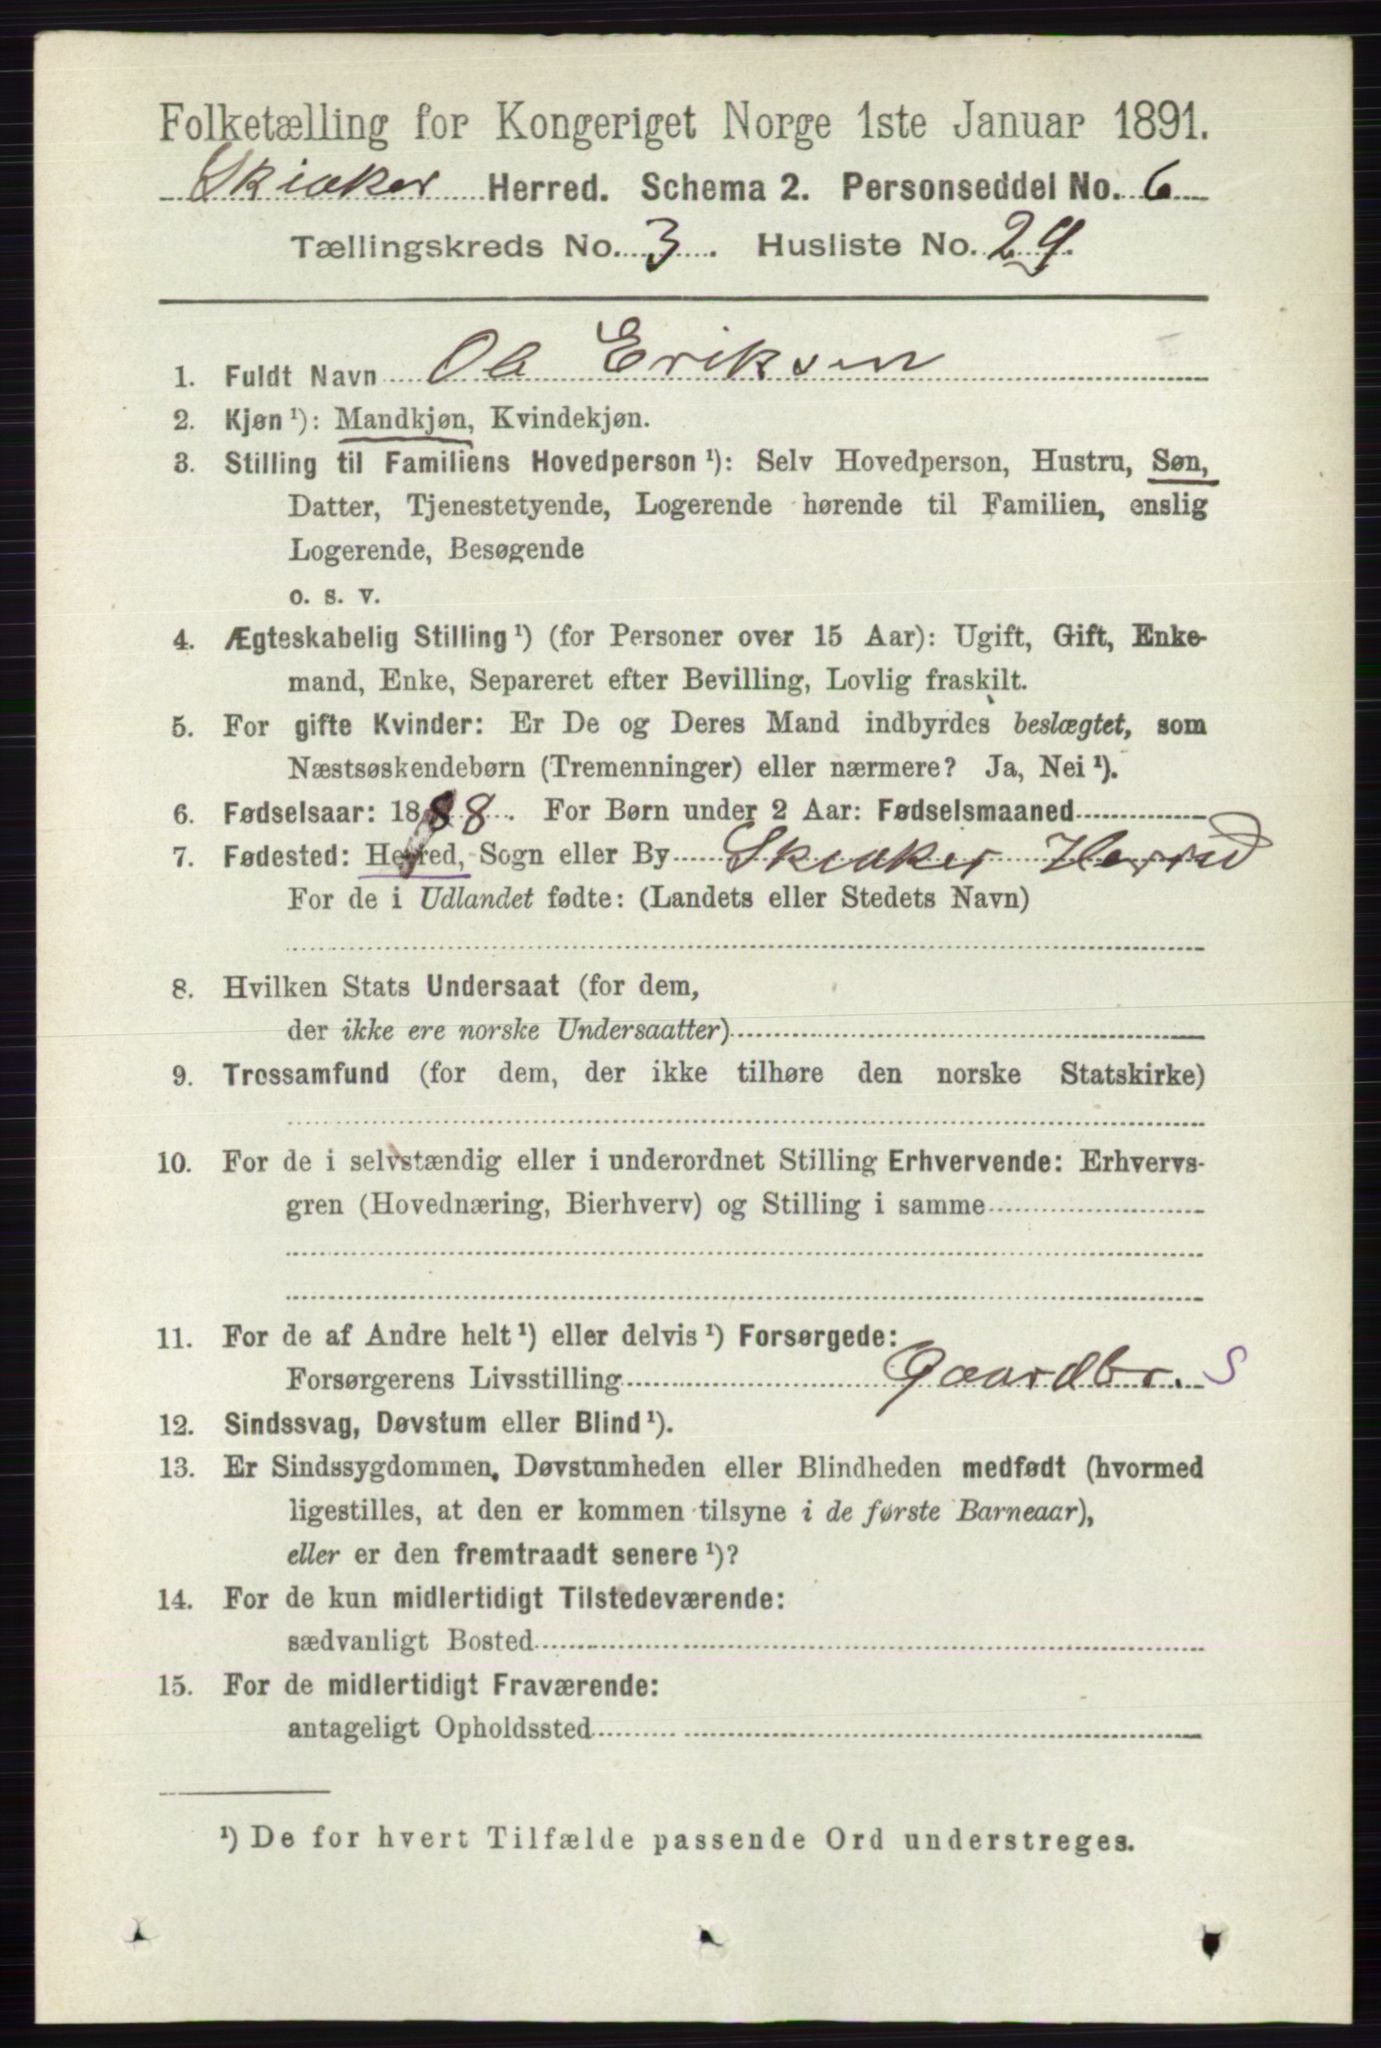 Folketælling for Kongeriget Norge 1ste Januar 1891.
Skiaker Herred. Schema 2. Personseddel No. 6
Tællingskreds No. 3. Husliste No. 29.
1. Fuldt Navn Ole Eriksen
2. Kjøn ¹): Mandkjøn, Kvindekjøn.
3. Stilling til Familiens Hovedperson ¹): Selv Hovedperson, Hustru, Søn,
Datter, Tjenestetyende, Logerende hørende til Familien, enslig
Logerende, Besøgende
o. s. v.
4. Ægteskabelig Stilling ¹) (for Personer over 15 Aar): Ugift, Gift, Enke-
mand, Enke, Separeret efter Bevilling, Lovlig fraskilt.
5. For gifte Kvinder: Er De og Deres Mand indbyrdes beslægtet, som
Næstsøskendebørn (Tremenninger) eller nærmere? Ja, Nei ¹).
6. Fødselsaar: 1888. For Børn under 2 Aar: Fødselsmaaned
7. Fødested: Herred, Sogn eller By Skiaker Herred
For de i Udlandet fødte: (Landets eller Stedets Navn)
8. Hvilken Stats Undersaat (for dem,
der ikke ere norske Undersaatter)
9. Trossamfund (for dem, der ikke tilhøre den norske Statskirke)
10. For de i selvstændig eller i underordnet Stilling Erhvervende: Erhvervs-
gren (Hovednæring, Bierhverv) og Stilling i samme
11. For de af Andre helt ¹) eller delvis ¹) Forsørgede:
Forsørgerens Livsstilling Gaardbr. S
12. Sindssvag, Døvstum eller Blind ¹).
13. Er Sindssygdommen, Døvstumheden eller Blindheden medfødt (hvormed
ligestilles, at den er kommen tilsyne i de første Barneaar),
eller er den fremtraadt senere ¹)?
14. For de kun midlertidigt Tilstedeværende:
sædvanligt Bosted
15. For de midlertidigt Fraværende:
antageligt Opholdssted
¹) De for hvert Tilfælde passende Ord understreges.